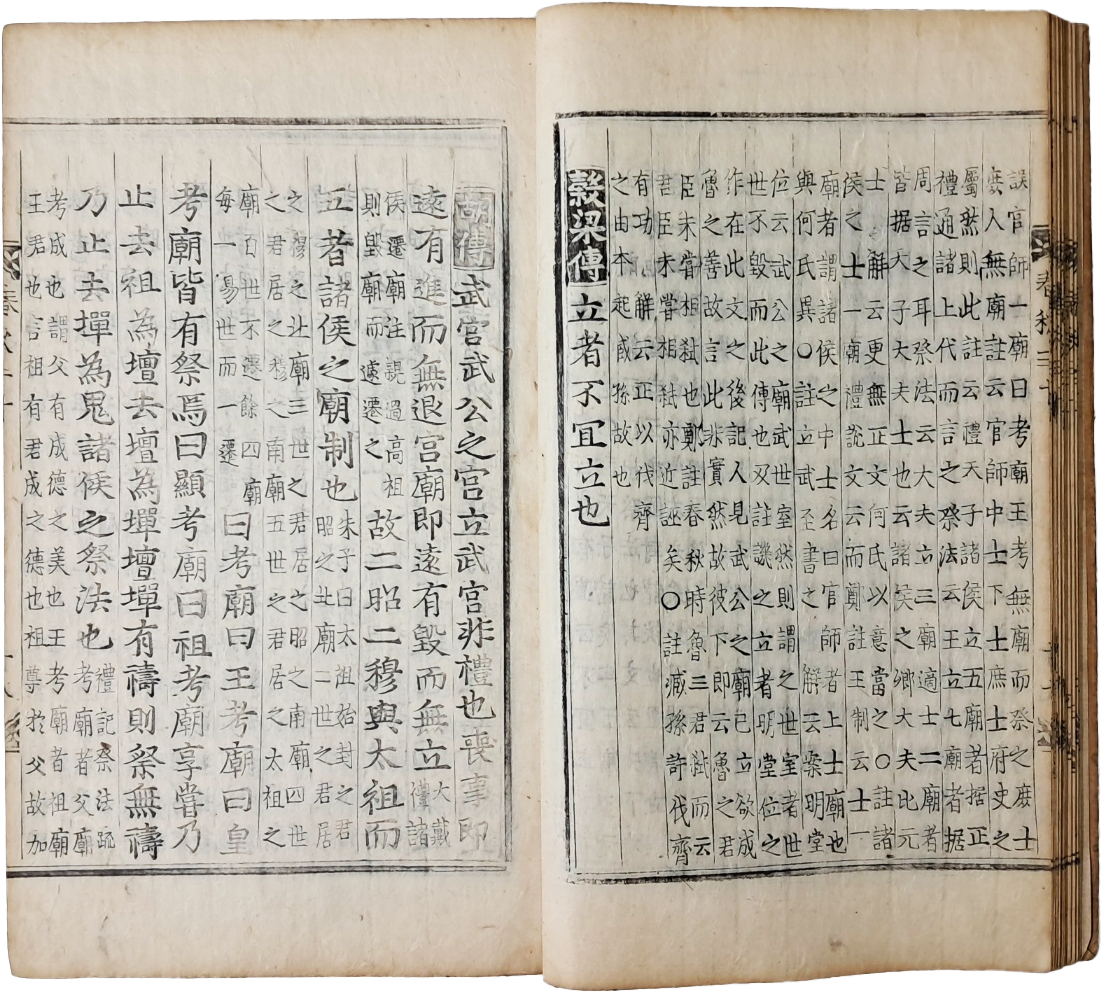 誤官師一廟曰考廟王考無廟而祭之庶士
庶人無廟註云官師中士下士庶士府史之
屬然則此註云禮天子諸侯立五廟者据正
禮通諸上代而言之祭法云王立七廟者据
周言之耳祭法云大夫立三廟適士二廟者
皆据天子大夫士也云諸侯之鄉大夫比元
士解云更無正文何氏以意當之○註諸
侯之士一廟禮說文云而鄭註王制云士一
廟者謂諸侯之中士名曰官師者上士廟也
與何氏異○註立武至書之解云案明堂
位云武公之廟武世室然則謂之世室者世
世不毀而此傳也及註譏之立者明堂位之
作在此文之後記人見武公之廟已立欲成
魯之善故言此非實然故彼下即云魯之君
臣未嘗相弑也鄭註春秋時魯三君弑而云
君臣未嘗相弑亦近誣矣○註臧孫許伐齊
有功解云正以伐齊
之由本起臧孫故也
穀梁傳立者不冝立也
胡傳武宮武公之宮立武宮非禮也喪事即
遠有進而無退宮廟即遠有毀而無立大戴禮諸
侯遷廟注說過高祖則毀廟而遞遷之故二昭二穆與太祖而
五者諸侯之廟制也朱子曰太祖始封之君昭之北廟二世之君居
之穆之北廟三世之君居之昭之南廟四世
之君居之穆之南廟五世之君居之太祖之
廟百世不遷餘四廟每一易世而一遷曰考廟曰王考廟曰皇
考廟皆有祭焉曰顯考廟曰祖考廟享嘗乃
止去祖為壇去壇為墠壇墠有禱則祭無禱
乃止去墠為鬼諸侯之祭法也禮記祭法疏考廟者父廟
考成也謂父有成德之美也王考廟者祖廟
王君也言祖有君成之德也祖尊於父故加